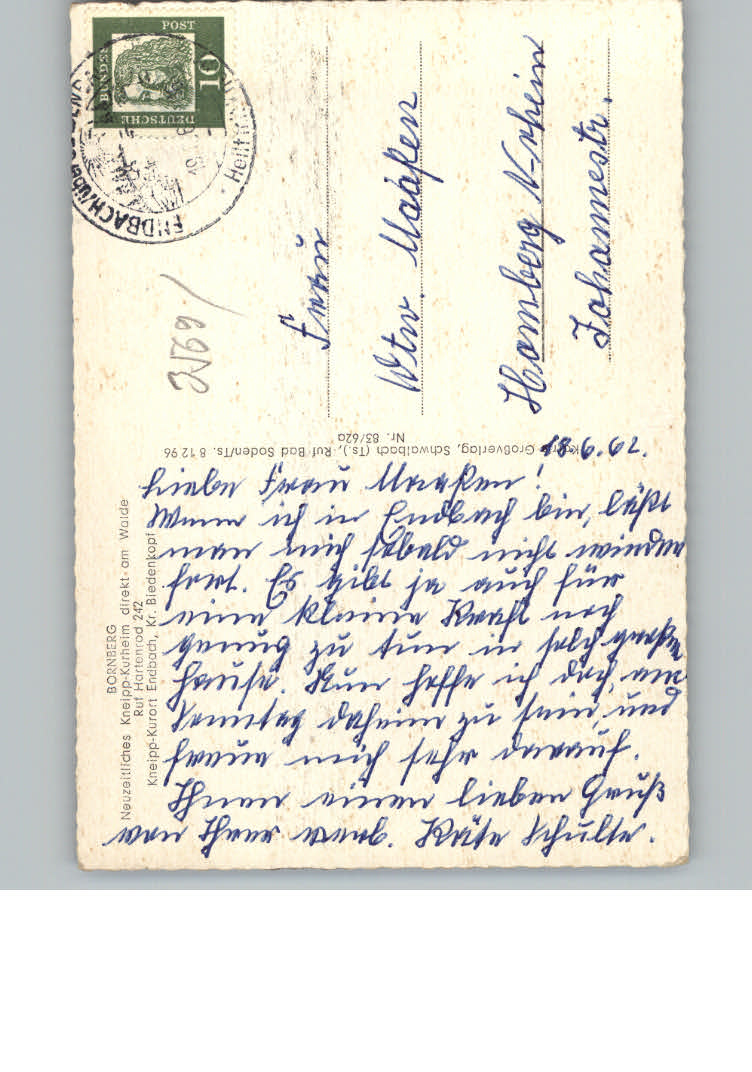 BORNBERG
Neuzeitliches Kneipp-Kurheim direkt am Walde
Ruf Hartenrod 242
Kneipp-Kurort Endbach, Kr. Biedenkopf
18.6.62.
Liebe Frau Maaßen!
Wenn ich in Endbach bin, läßt
man mich sobald nicht wieder
fort. Es gibt ja auch für
eine kleine Kraft noch
genug zu tun in solch großen
Hause. Nun hoffe ich doch, am
Sonntag daheim zu sein und
freue mich sehr darauf.
Ihnen einen lieben Gruß
von Ihrer verb. Käte Schulte.
Großverlag, Schwalbach (Ts.), Ruf Bad Soden/Ts. 8 12 96
Nr. 83/62a
Frau
Wtw. Maaßen
Homberg N-rhein
Johannestr.
2569/
DEUTSCHE
BUNDES
POST
10
ENDBACH/über